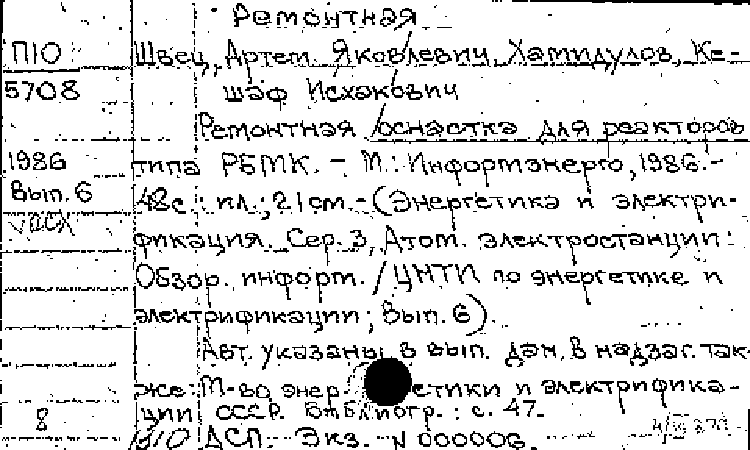 Ремонтная
П10 Швец, Артем Яковлевич, Хамидулов, Ке-
5708 шаф Исхакович
Ремонтная оснастка для реакторов
1986 типа РБМК. - М.: Информэнерго, 1986.-
Вып. 6 48с.: ил.; 21 см.-(Энергетика и электри-
фикация. Сер. 3, Атом. электростанции:
Обзор. информ. / ЦНТИ по энергетике и
электрификации; Вып. 6).
Авт. указаны в вып. дан. В надзаг. так-
же: М-во энергетики и электрифика-
8 ции СССР. Библиогр.: с. 47.
ДСП. Экз. N 000006.